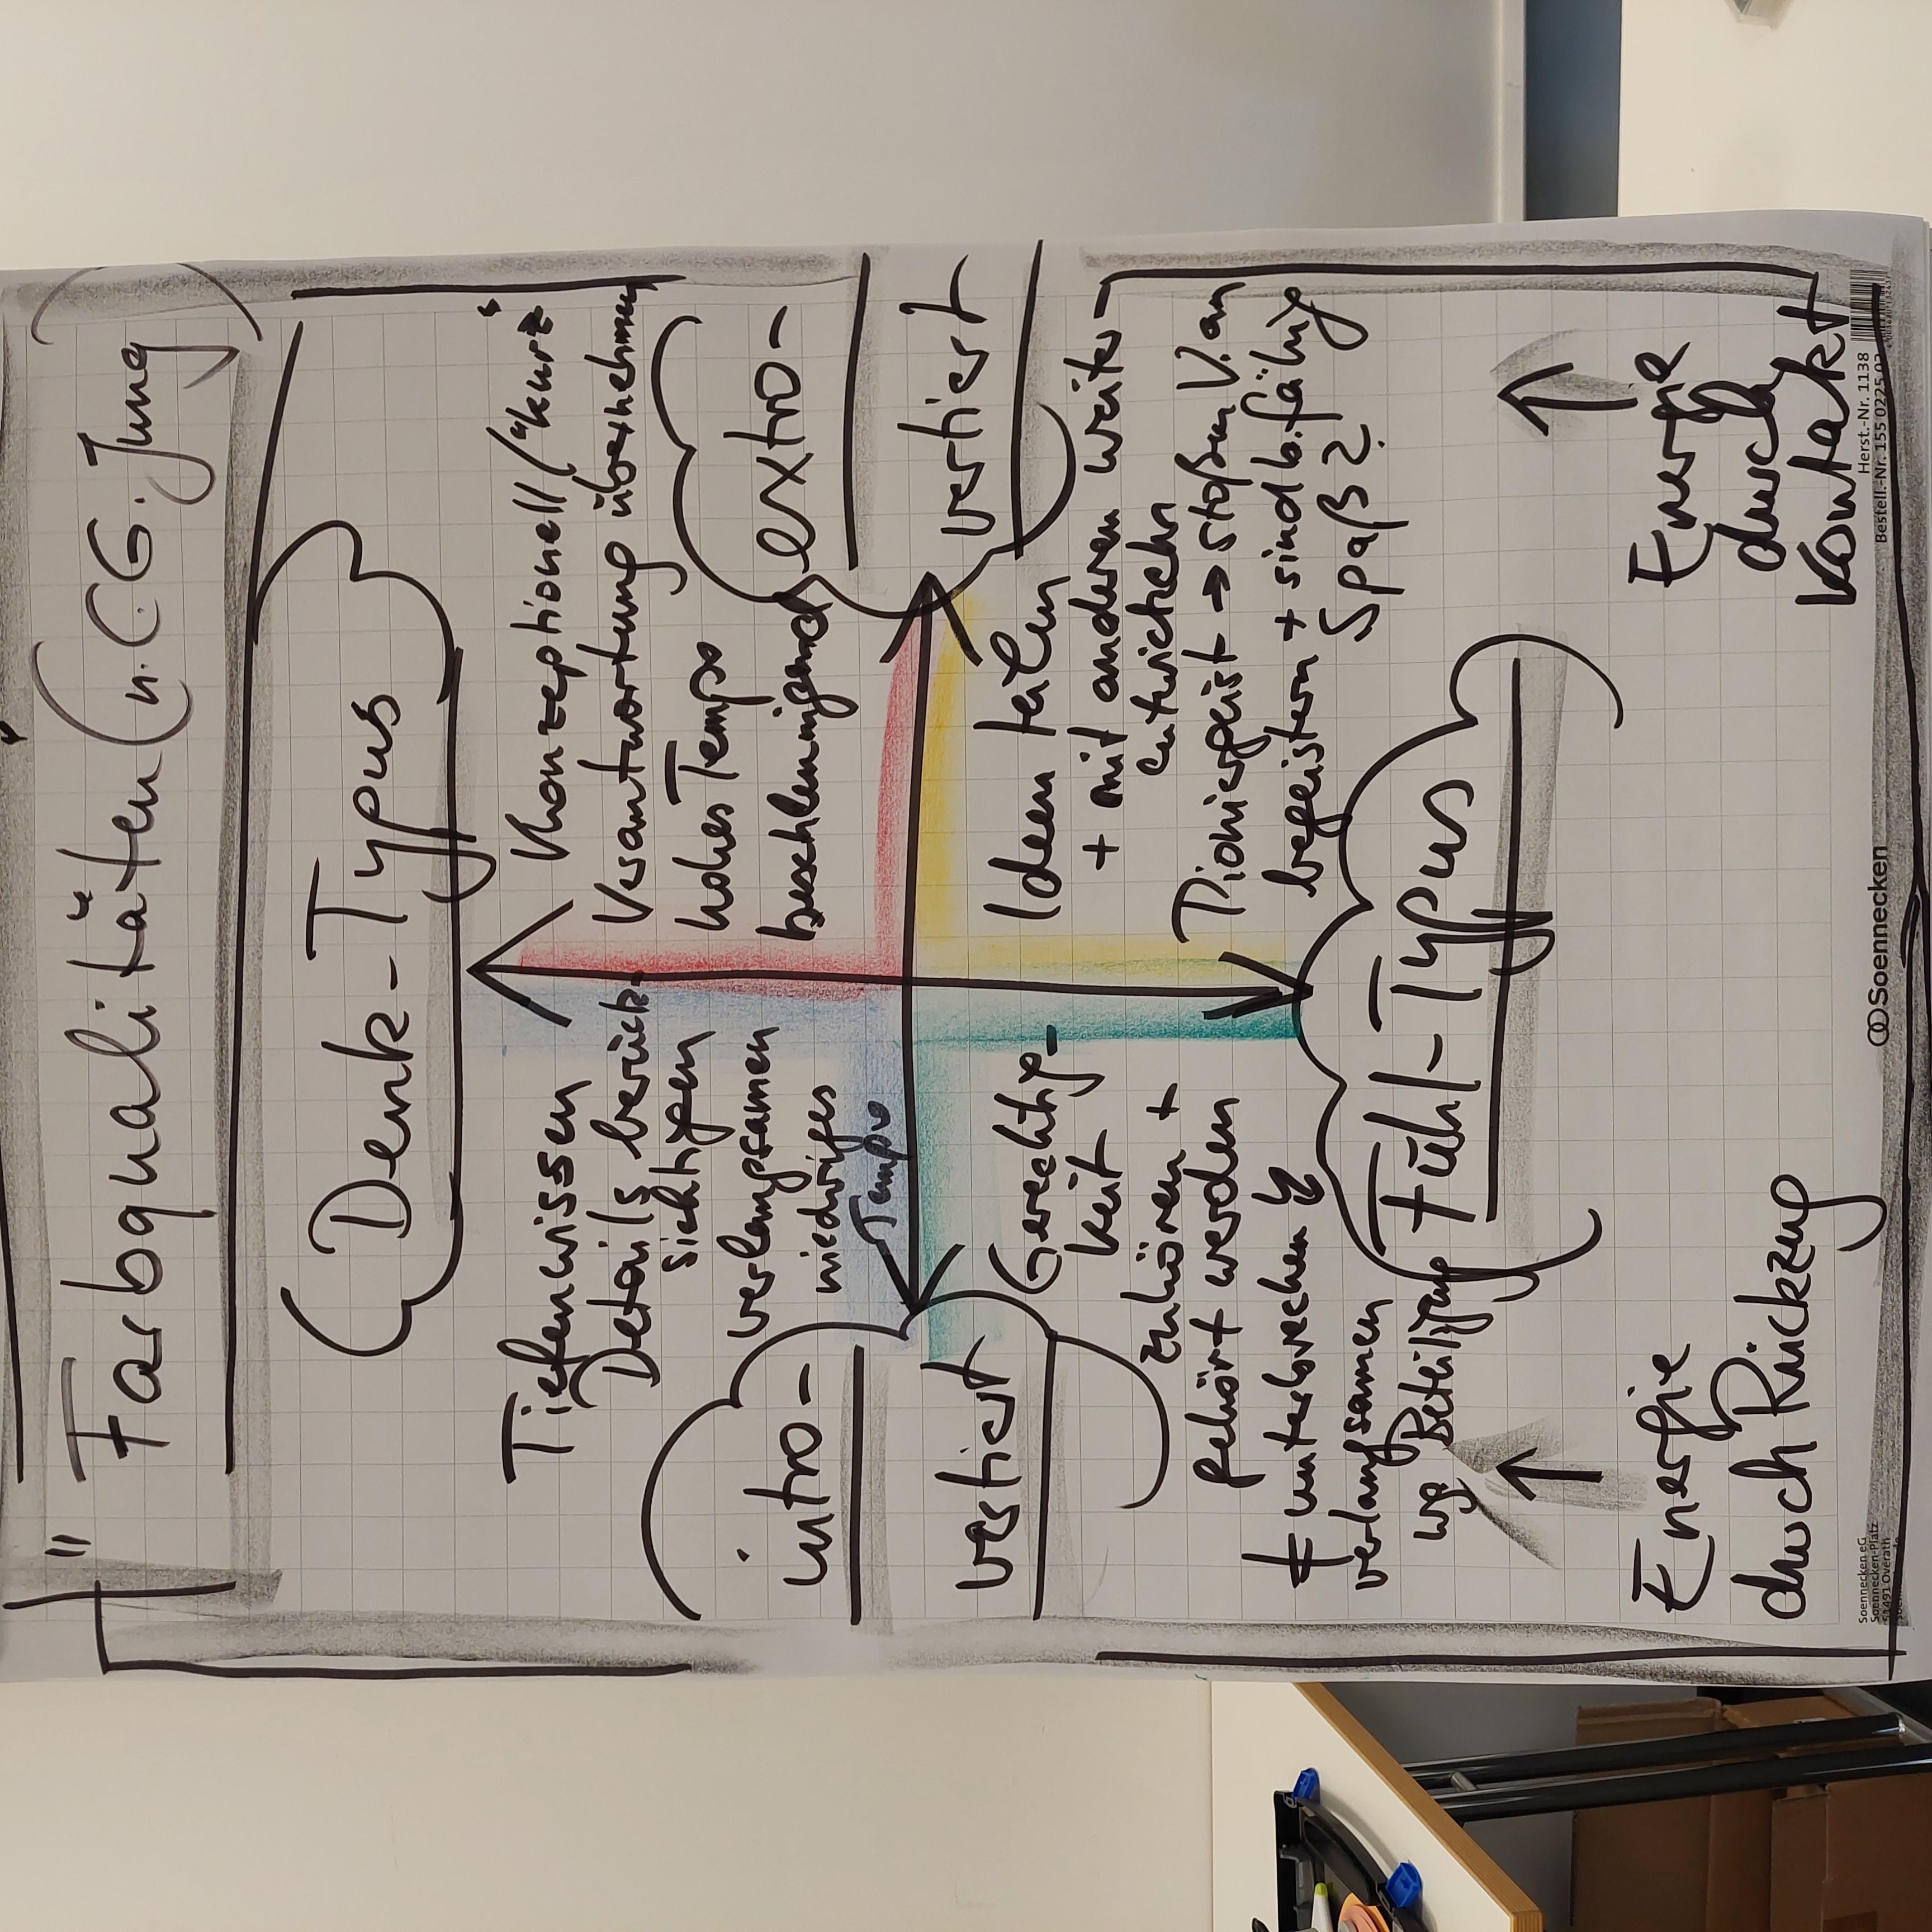 "Farbqualitäten (n. CG. Jung)
Denk-Typus
Tiefenwissen
Details berück-
sichtigen
verlangsamen
niedriges
Tempo
Konzeptionell/"kurz"
Verantwortung übernehmen
hohes Tempo
beschleunigend
intro-
vertiert
extro-
vertiert
Gerechtig-
keit
zuhören +
gehört werden
≠ unterbrechen
verlangsamen
wg Beteiligung
Ideen teilen
+ mit anderen weiter-
entwickeln
Pioniergeist → stoßen V. an
begeistern + sind b.fähig
Spaß
Fühl-Typus
Energie
durch Rückzug
Energie
durch
Kontakt
Soennecken eG
Soennecken-Platz
51491 Overath
Soennecken
Herst.-Nr. 1138